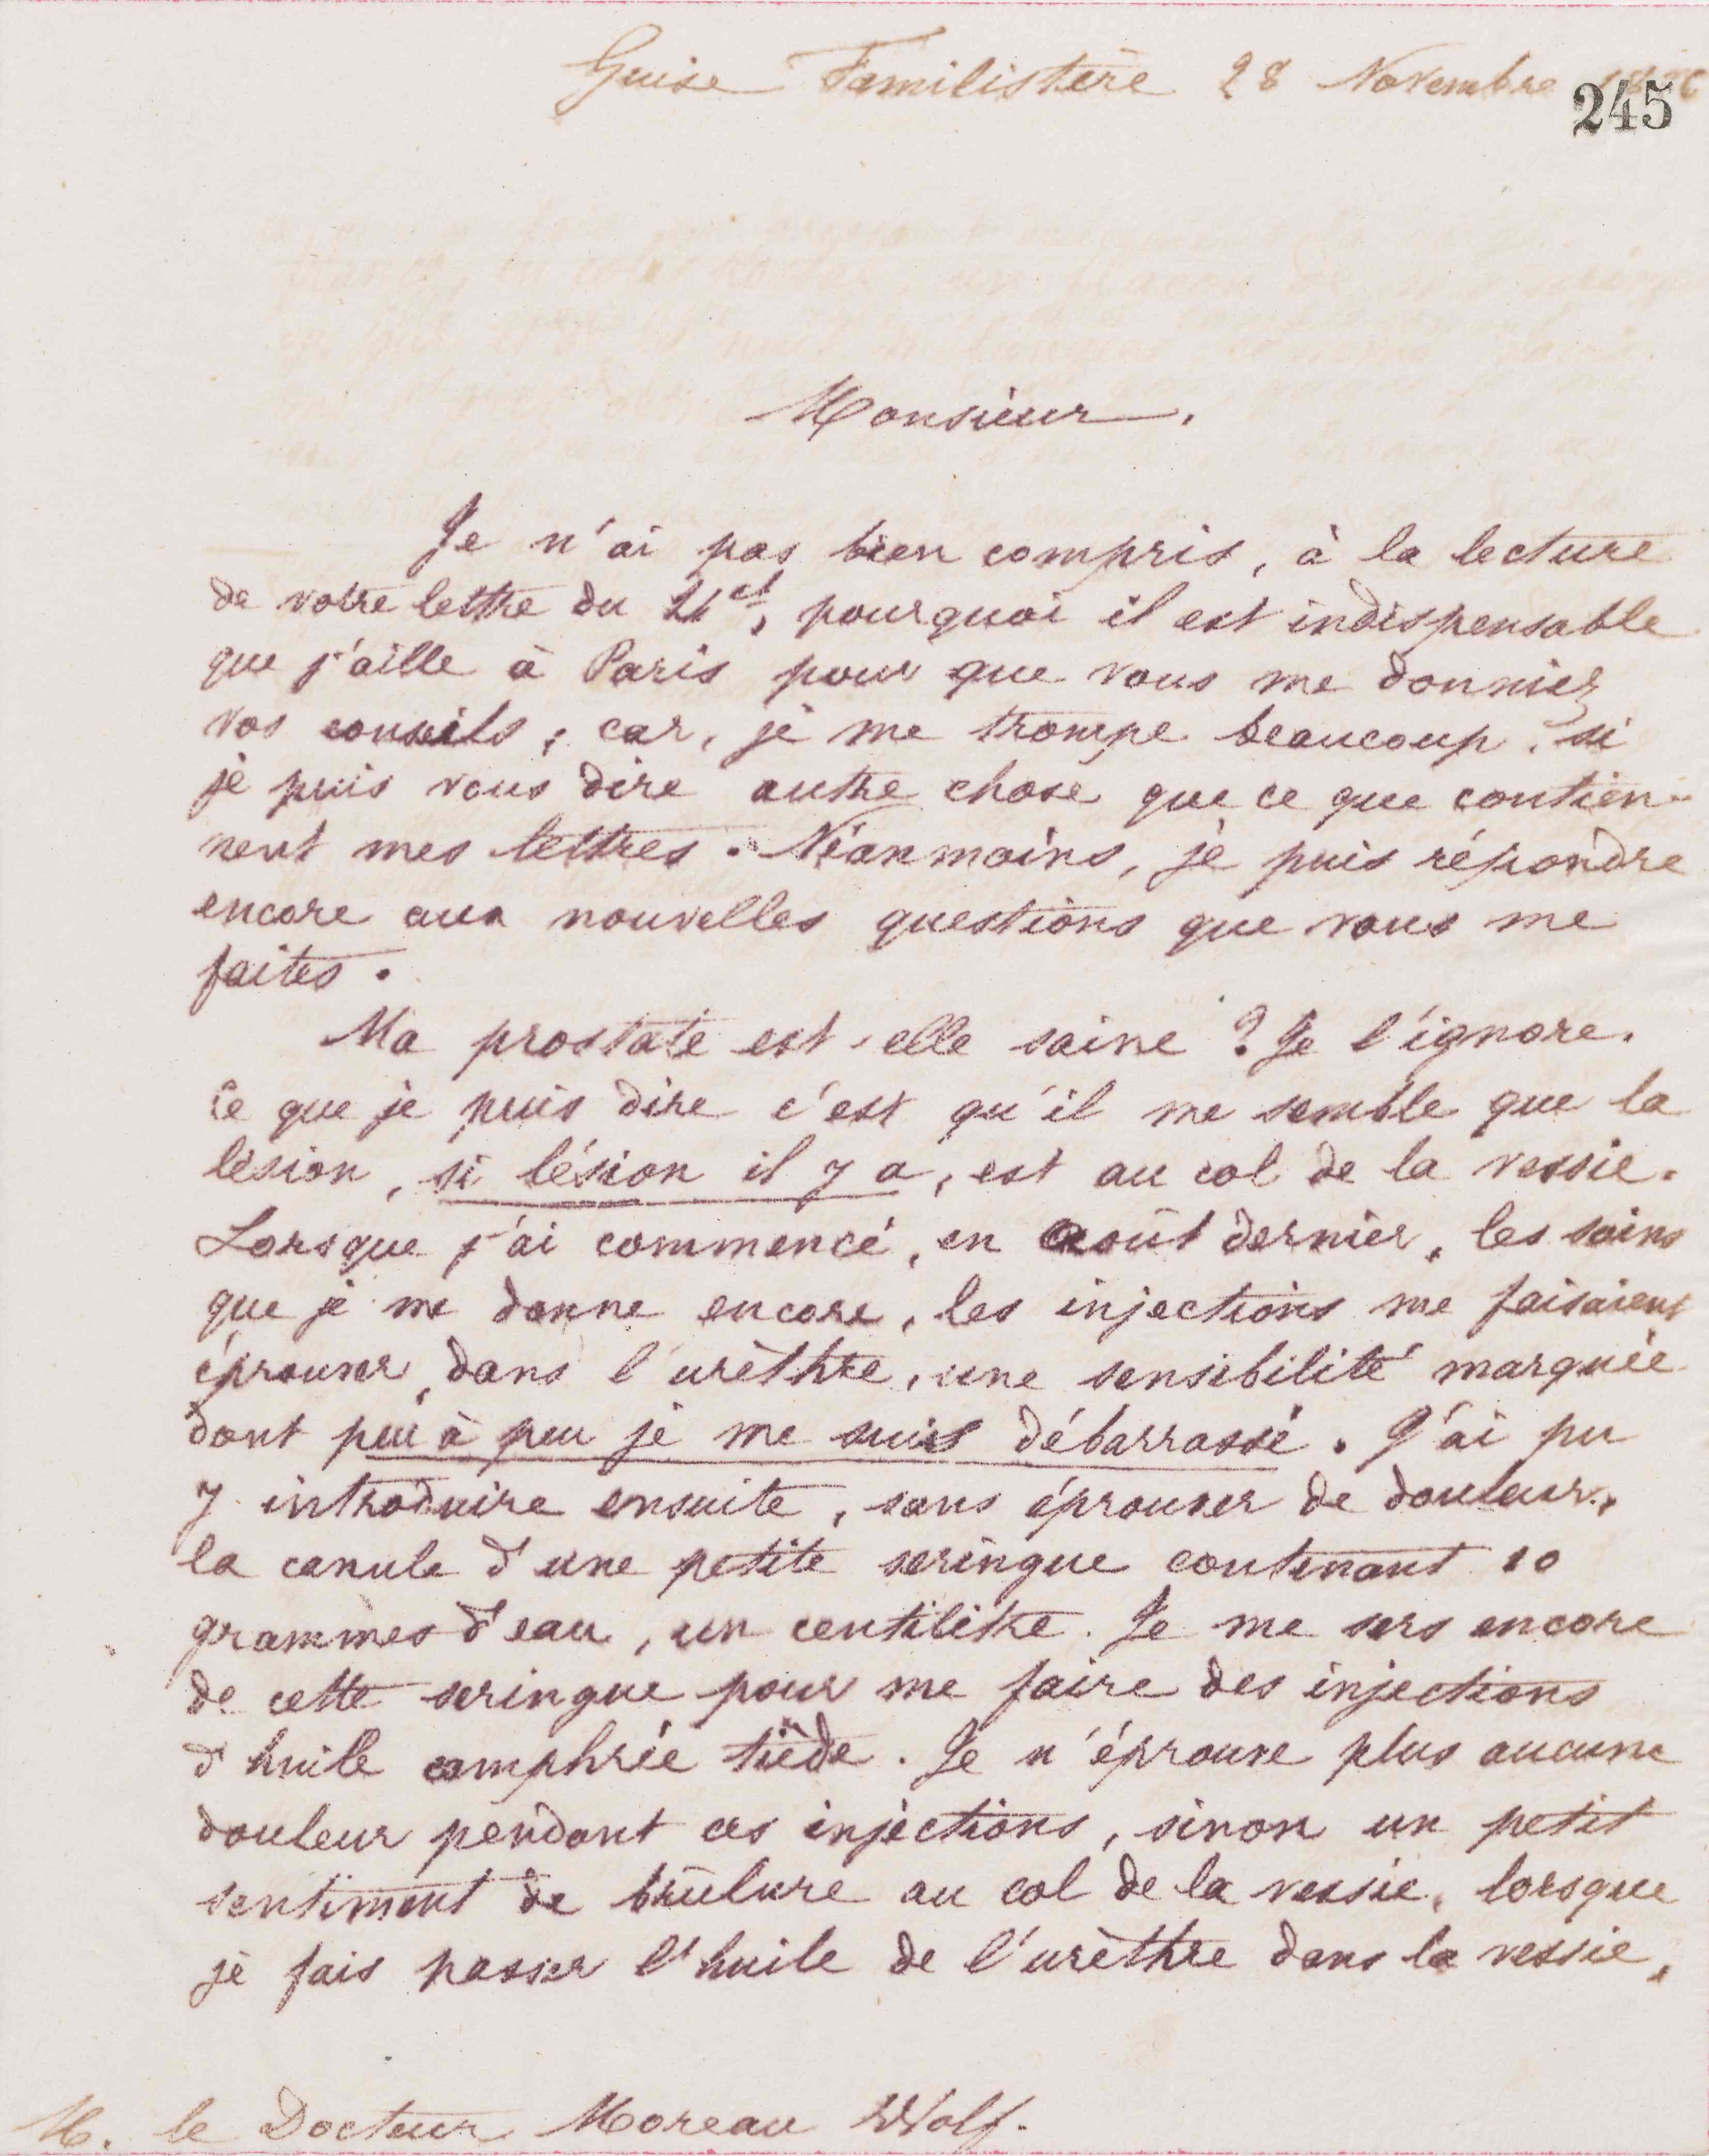 Guise Familistère 28 Novembre
245
Monsieur,
Je n'ai pas bien compris, à la lecture
de votre lettre du ct, pourquoi il est indispensable
que j'aille à Paris pour que vous me donniez
vos conseils ; car, je me trompe beaucoup, si
je puis vous dire autre chose que ce que contien-
nent mes lettres. Néanmoins, je puis répondre
encore aux nouvelles questions que vous me
faites.
Ma prostate est-elle saine ? Je l'ignore.
Ce que je puis dire c'est qu'il me semble que la
lésion, si lésion il y a, est au col de la vessie.
Lorsque j'ai commencé, en août dernier, les soins
que je me donne encore, les injections me faisaient
éprouver, dans l'urèthre, une sensibilité marquée
dont peu à peu je me suis débarrassé. J'ai pu
y introduire ensuite, sans éprouver de douleur,
la canule d'une petite seringue contenant 10
grammes d'eau, un centilitre. Je me sers encore
de cette seringue pour me faire des injections
d'huile camphrée tiède. Je n'éprouve plus aucune
douleur pendant ces injections, sinon un petit
sentiment de brûlure au col de la vessie, lorsque
je fais passer l'huile de l'urèthre dans la vessie,
M. le Docteur Moreau Wolf.